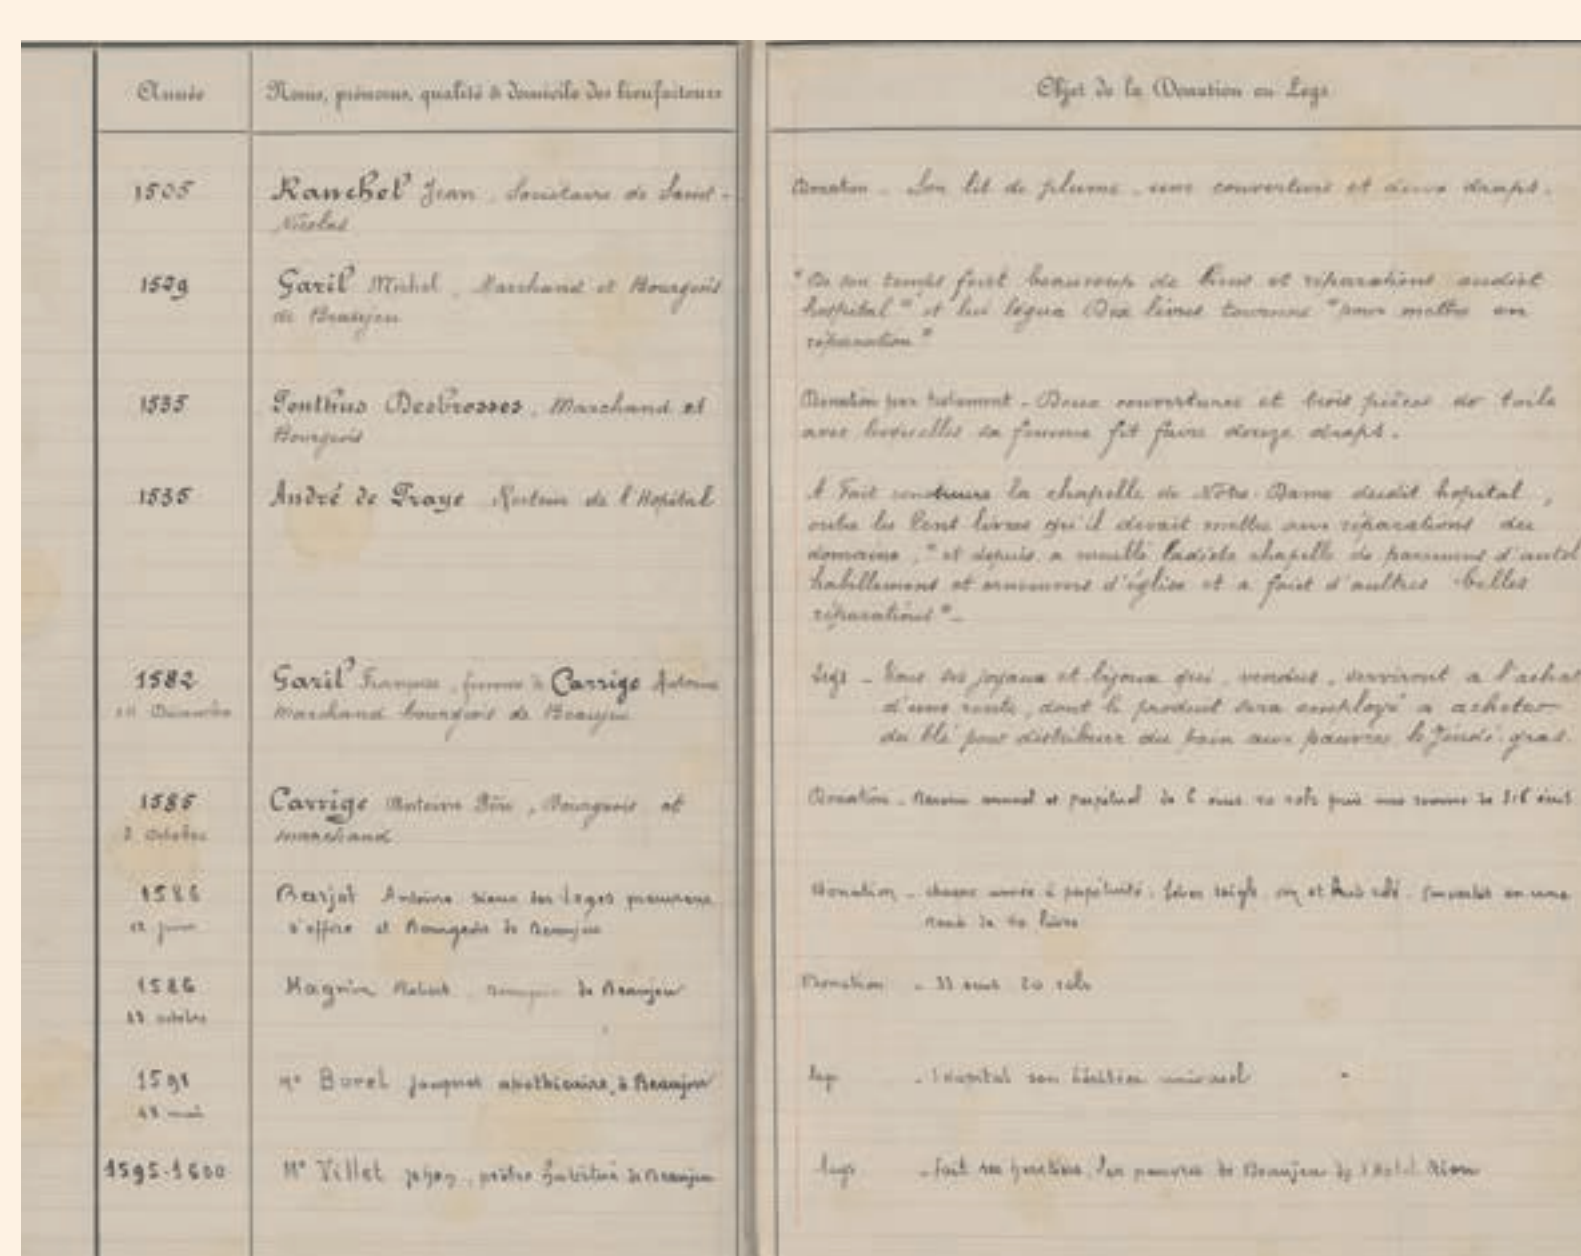 Année
Noms, prénoms, qualité & domicile des bienfaiteurs
Objet de la Donation ou Legs
1505
Ranchel Jean, Sociétaire de Saint-
Nicolas
Donation - Son lit de plume, une couverture et deux draps.
1529
Garil Michel, Marchand et Bourgeois
de Beaujeu
"De son temps feist beaucoup de biens et réparations audict
hospital" et lui légua Dix livres tournois "pour mettre en
réparation"
1535
Ponthus Desbrosses, Marchand et
Bourgeois
Donation par testament - Deux couvertures et trois pièces de toile
avec lesquelles sa femme fit faire douze draps.
1535
André de Traye Recteur de l'Hopital
A Fait construire la chapelle de Notre-Dame dudit hopital,
outre les Cent livres qu'il devait mettre aux réparations du
domaine, "et depuis a meublé ladicte chapelle de paremens d'autel
habillemens et ornemens d'église et a faict d'aultres belles
réparations"-
1582
Décembre
Garil Françoise, femme de Carrige Antoine
Marchand bourgeois de Beaujeu
Legs - Tous ses joyaux et bijoux qui, vendus, serviront a l'achat
d'une rente, dont le produit sera employé a acheter
du blé pour distribuer du pain aux pauvres le Jeudi-gras.
1585
2 Octobre
Carrige Antoine Père, Bourgeois et
marchand
Donation - annuel et perpétuel de 6 écus 20 sols puis une somme de 316 écus
1586
12 juin
Barjot Antoine sieur des Loges procureur
d'office et Bourgeois de Beaujeu
Donation - chaque année à perpétuité. seigle, vin et converties en une
rente de livres
1586
octobre
Magnin Robert de Beaujeu
Donation - 33 écus 20 sols
1591
18 mai
Me Borel Jacques apothicaire à Beaujeu
legs - l'hospital son héritier universel
1595-1600
Me Villet jehan, prêtre habitué de Beaujeu
legs - fait ses héritiers les pauvres de Beaujeu de l'hotel Dieu